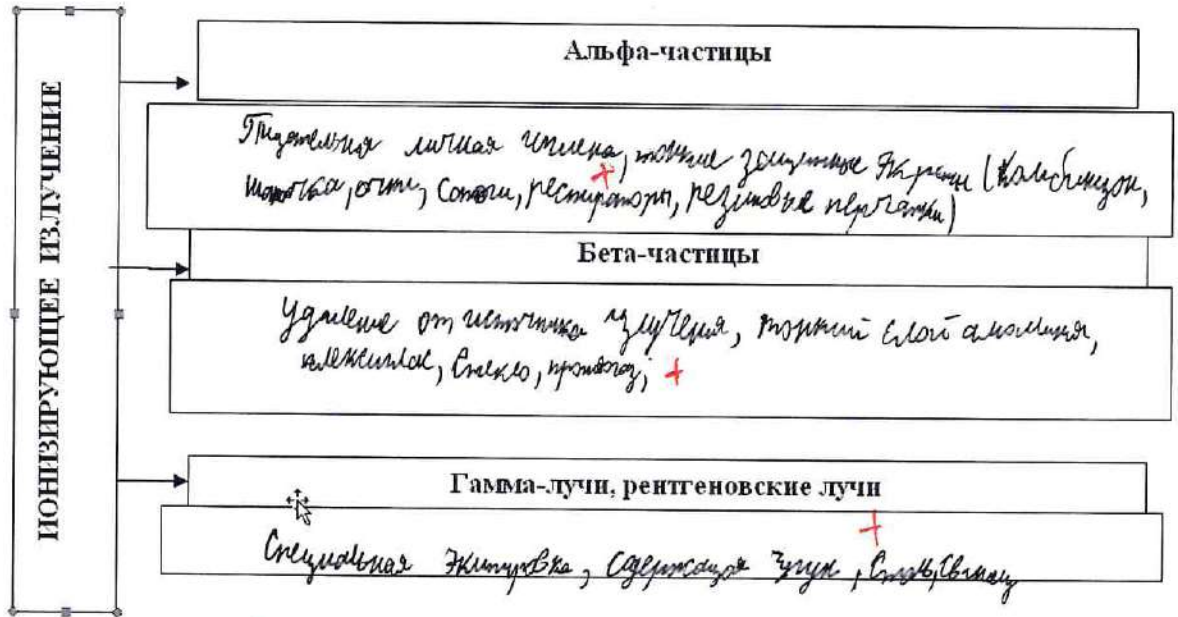 ИОНИЗИРУЮЩЕЕ ИЗЛУЧЕНИЕ
Альфа-частицы
Тщательная личная гигиена, тонкие защитные экраны (Комбинезон,
шапочка, очки, сапоги, респираторы, резиновые перчатки)
Бета-частицы
Удаление от источника излучения, тонкий слой алюминия,
плексиглас, Стекло, противогаз;
Гамма-лучи, рентгеновские лучи
Специальная экипировка, содержащая чугун, Сталь, Свинец